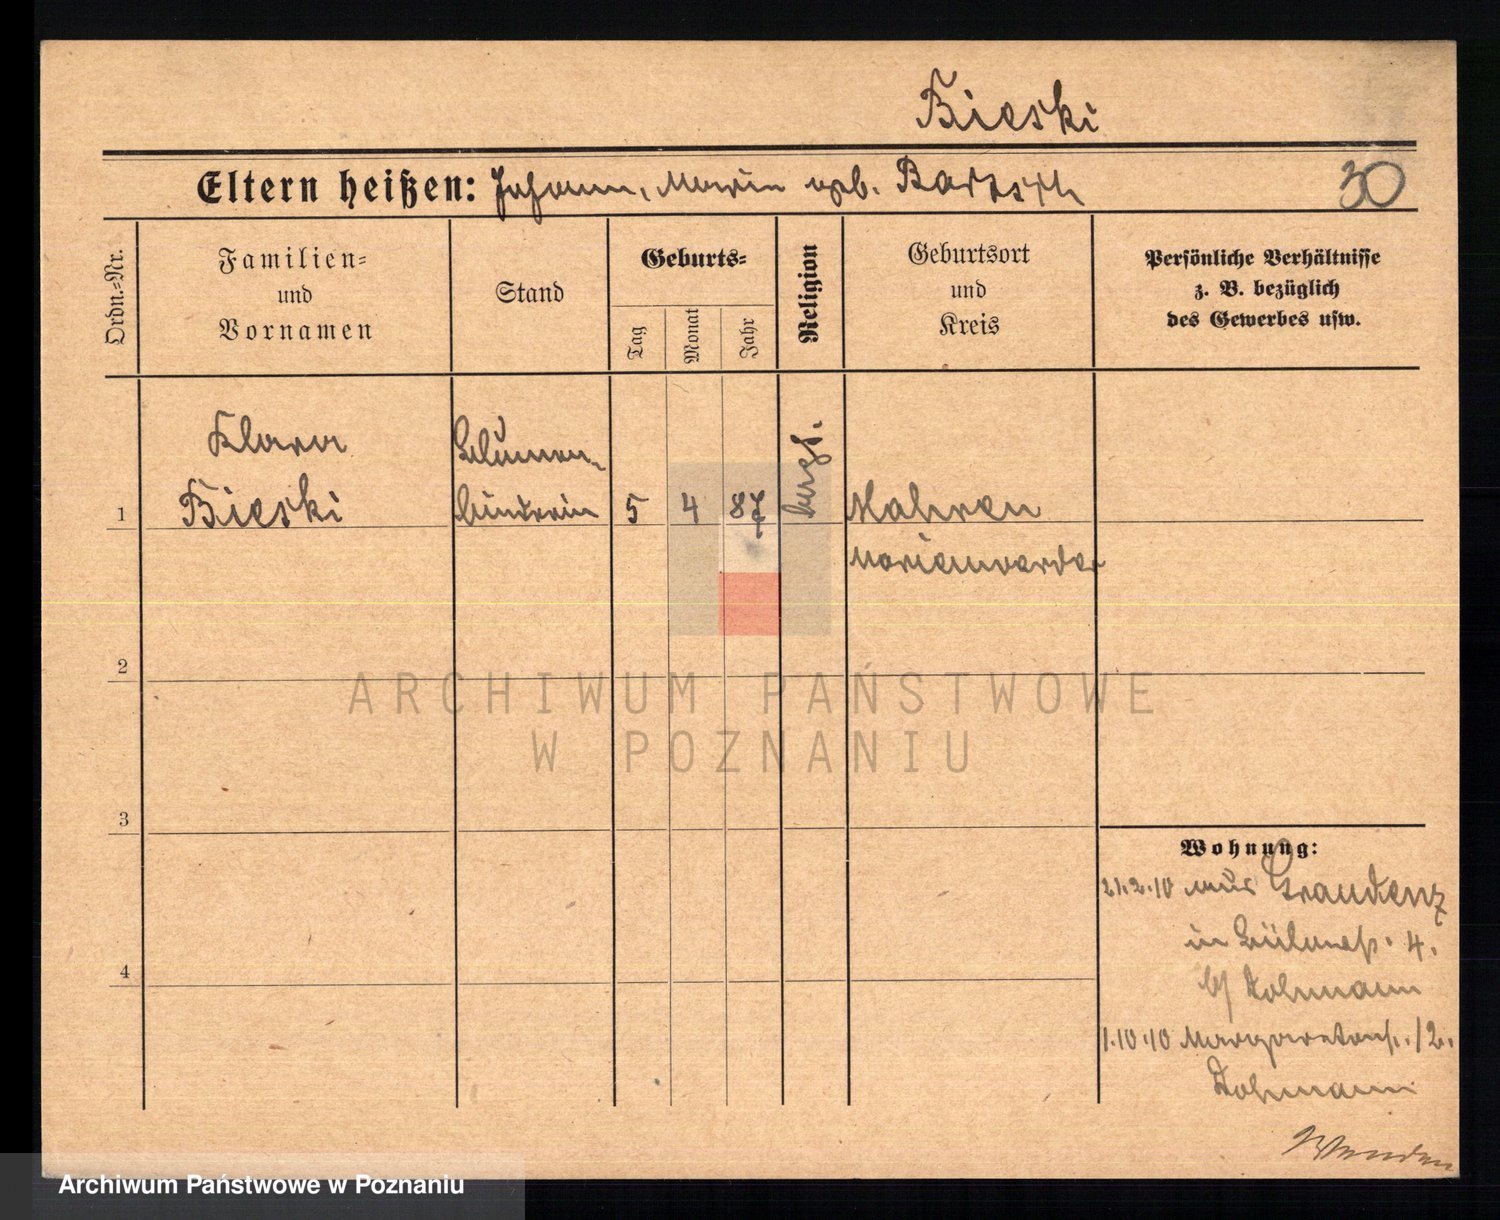 Bieski
Eltern heißen: Johann, Maria geb. Bartsch
30
Ordn.-Nr.
Familien-
und
Vornamen
Stand
Geburts-
Tag
Monat
Jahr
Religion
Geburtsort
und
Kreis
Persönliche Verhältnisse
z. B. bezüglich
des Gewerbes usw.
Klara
Blumen-
1 Bieski binderin 5 4 87 Mahren
Marienwerder
2
ARCHIWUM PAŃSTWOWE
W POZNANIU
3
Wohnung:
21.2.10 aus Graudenz
in 4.
4
b/ Hohmann
1.10.10 Margaretenstr. 12.
Hohmann
Wenden
Archiwum Państwowe w Poznaniu